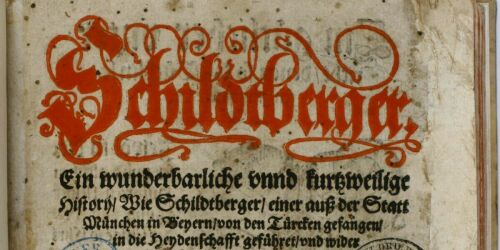 Schildtberger,
Ein wunderbarliche vnnd kurtzweilige
History/ Wie Schildtberger/ einer auß der Statt
München in Beyern/ von den Türcken gefangen/
in die Heydenschafft geführet/ vnd wider